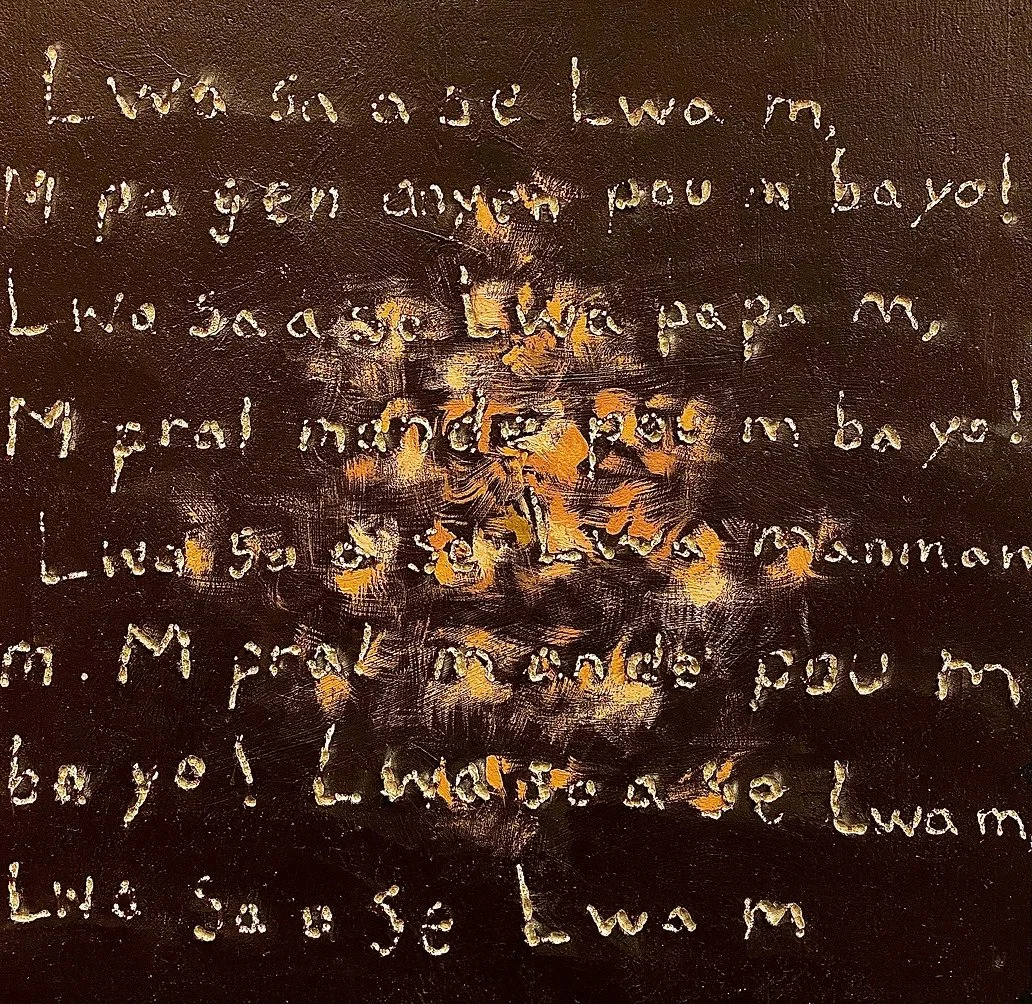 Lwa sa a se Lwa m,
M pa gen anyen pou m ba yo!
Lwa sa a se Lwa papa m,
M pral mande pou m ba yo!
Lwa sa a se Lwa manman
m. M pral mande pou m
ba yo! Lwa sa a se Lwa m,
Lwa sa a se Lwa m